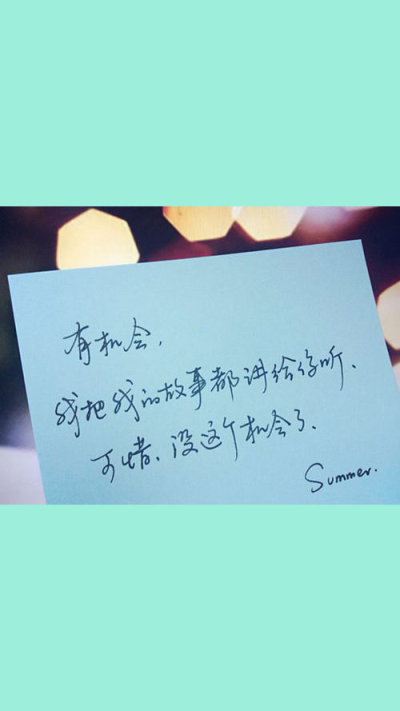 有机会,
我把我的故事都讲给你听、
可惜、没这个机会了、
Summer.